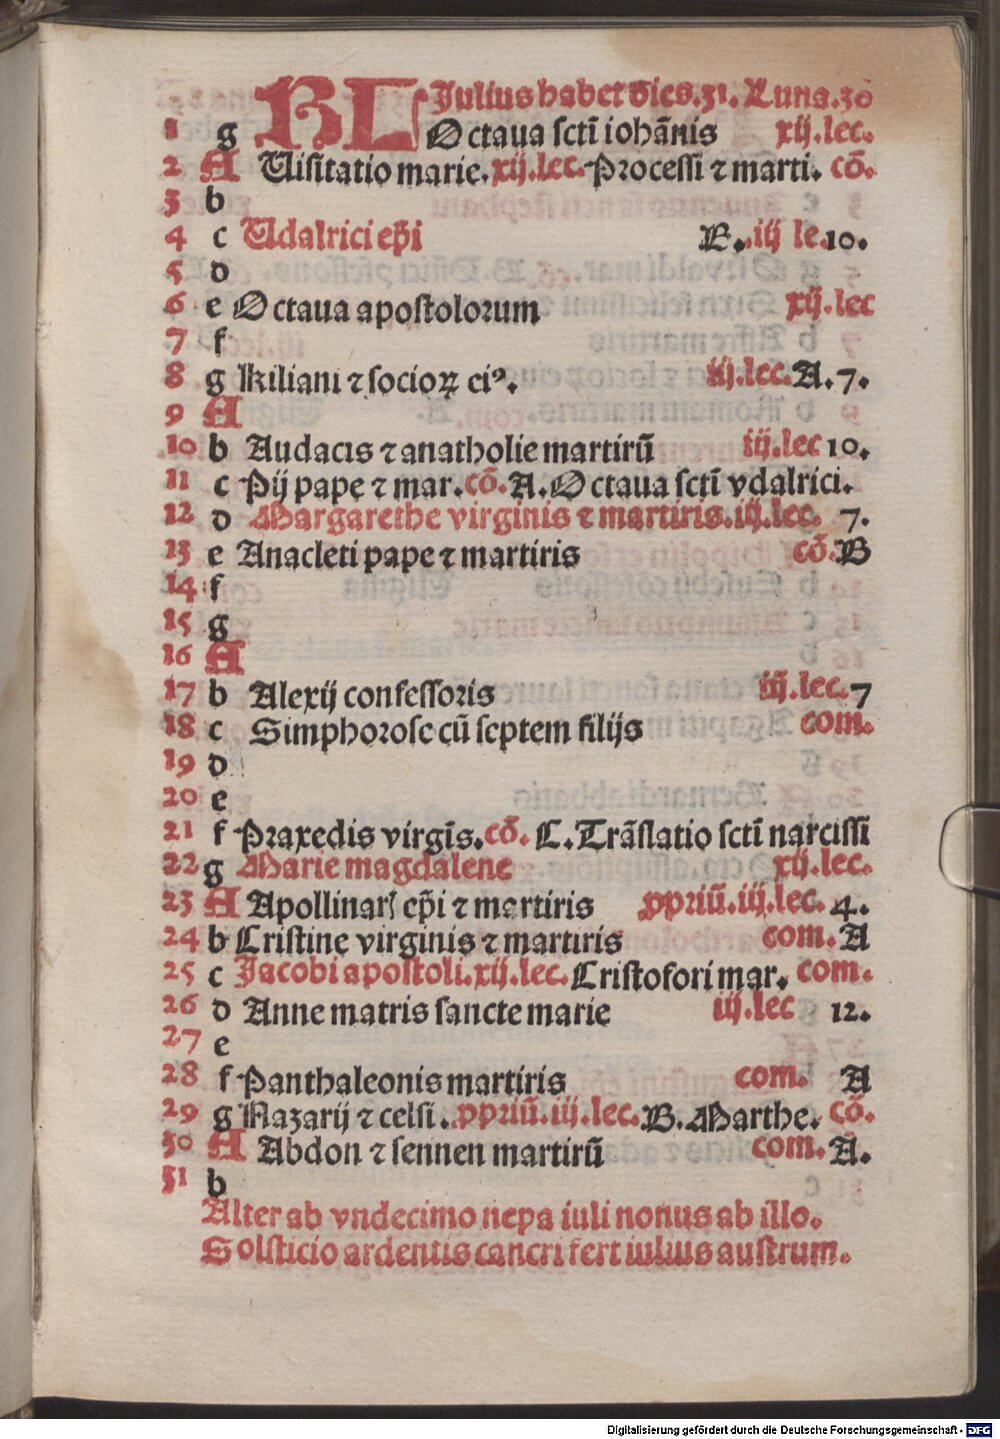 KL Julius habet dies.31. Luna.30
1 g Octaua sctī iohānis xij.lec.
2 A Uisitatio marie.xij.lec.Processi ⁊ marti. cō.
3 b
4 c Udalrici ep̄i iij le.10.
5 d
6 e Octaua apostolorum xij.lec
7 f
8 g Kiliani ⁊ socioꝝ ciꝰ. iij.lec.A.7.
9 A
10 b Audacis ⁊ anatholie martirū iij.lec 10.
11 c Pij pape ⁊ mar.cō.A.Octaua sctī vdalrici.
12 d Margarethe virginis ⁊ martiris.iij.lec. 7.
13 e Anacleti pape ⁊ martiris cō.B
14 f
15 g
16 A
17 b Alexij confessoris iij.lec.7
18 c Simphorose cū septem filijs com.
19 d
20 e
21 f Praxedis virgīs.cō. C.Trāslatio sctī narcissi
22 g Marie magdalene xij.lec.
23 A Apollinar} ep̄i ⁊ martiris ꝓpriū.iij.lec. 4.
24 b Cristine virginis ⁊ martiris com.A
25 c Jacobi apostoli.xij.lec.Cristofori mar. com.
26 d Anne matris sancte marie iij.lec 12.
27 e
28 f Panthaleonis martiris com. A
29 g Nazarij ⁊ celsi.ꝓpriū.iij.lec.B.Marthe. cō.
30 A Abdon ⁊ sennen martirū com.A.
31 b
Alter ab vndecimo nepa iuli nonus ab illo.
Solsticio ardentis cancri fert iulius austrum.
Digitalisierung gefördert durch die Deutsche Forschungsgemeinschaft - DFG